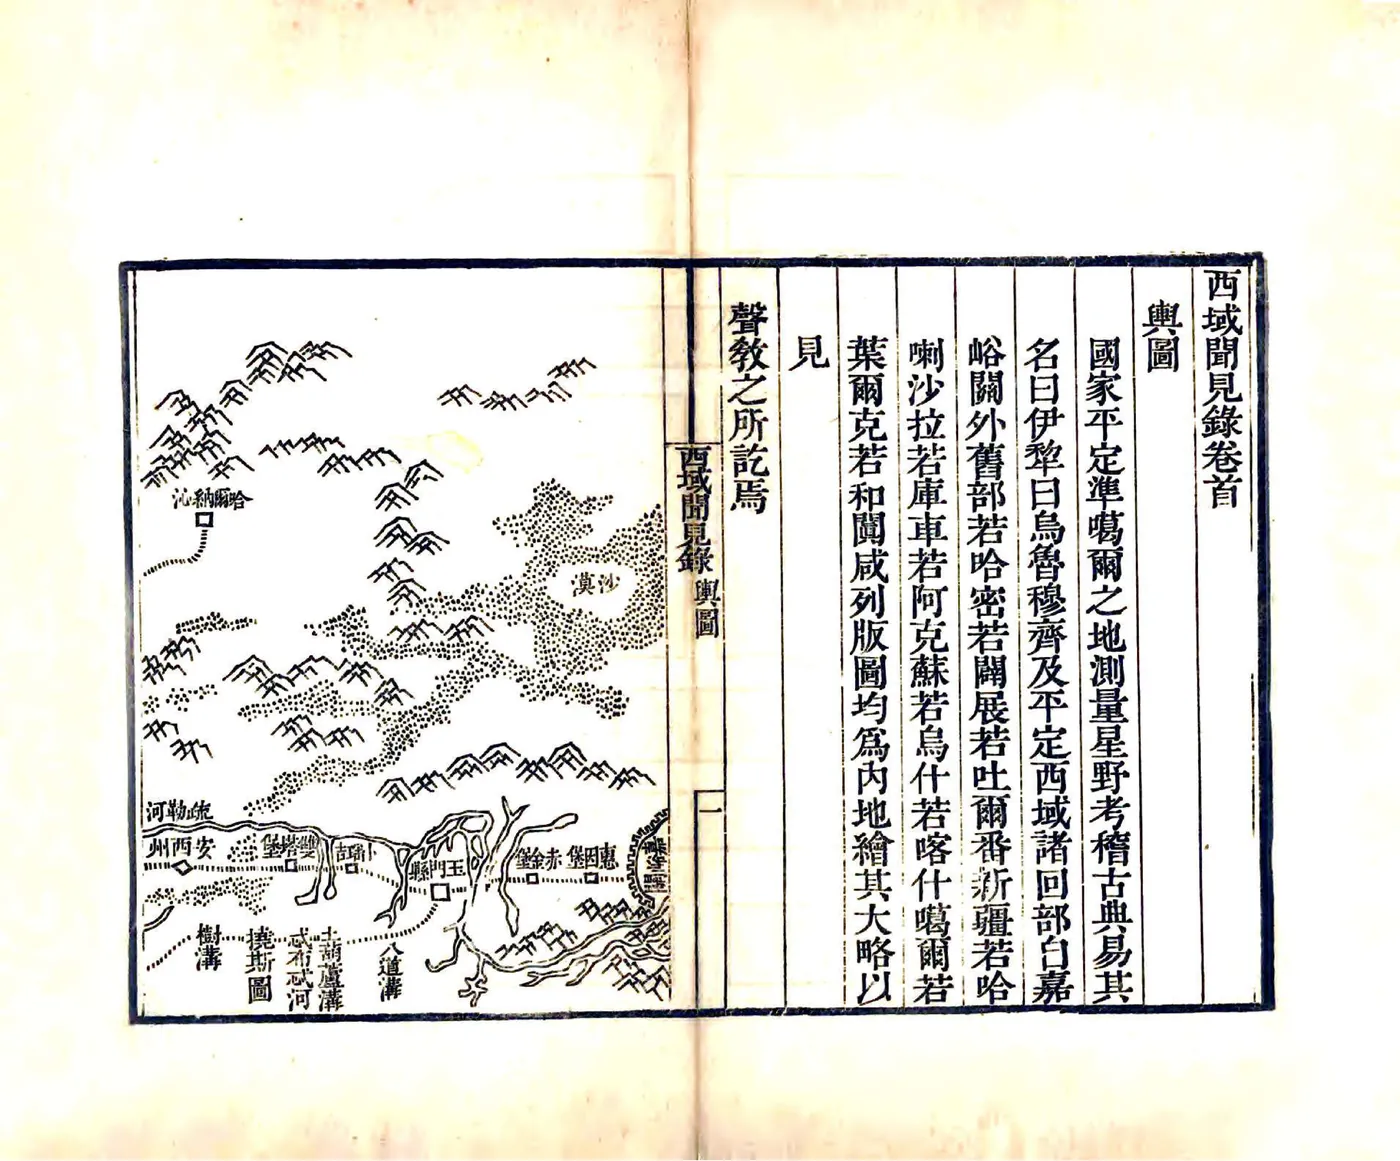 西域聞見錄卷首
輿圖
國家平定準噶爾之地測量星野考稽古典易其
名曰伊犂曰烏魯穆齊及平定西域諸回部自嘉
峪關外舊部若哈密若闢展若吐爾番新疆若哈
喇沙拉若庫車若阿克蘇若烏什若喀什噶爾若
葉爾克若和闐咸列版圖均爲內地繪其大略以
見
聲敎之所訖焉
西域聞見錄
輿圖
一
沙漠
哈爾納沁
嘉峪關
惠回堡
赤金堡
玉門縣
卜隆吉
雙塔堡
安西州
疏勒河
八道溝
土葫蘆溝
忒布忒河
撓斯圖
樹溝